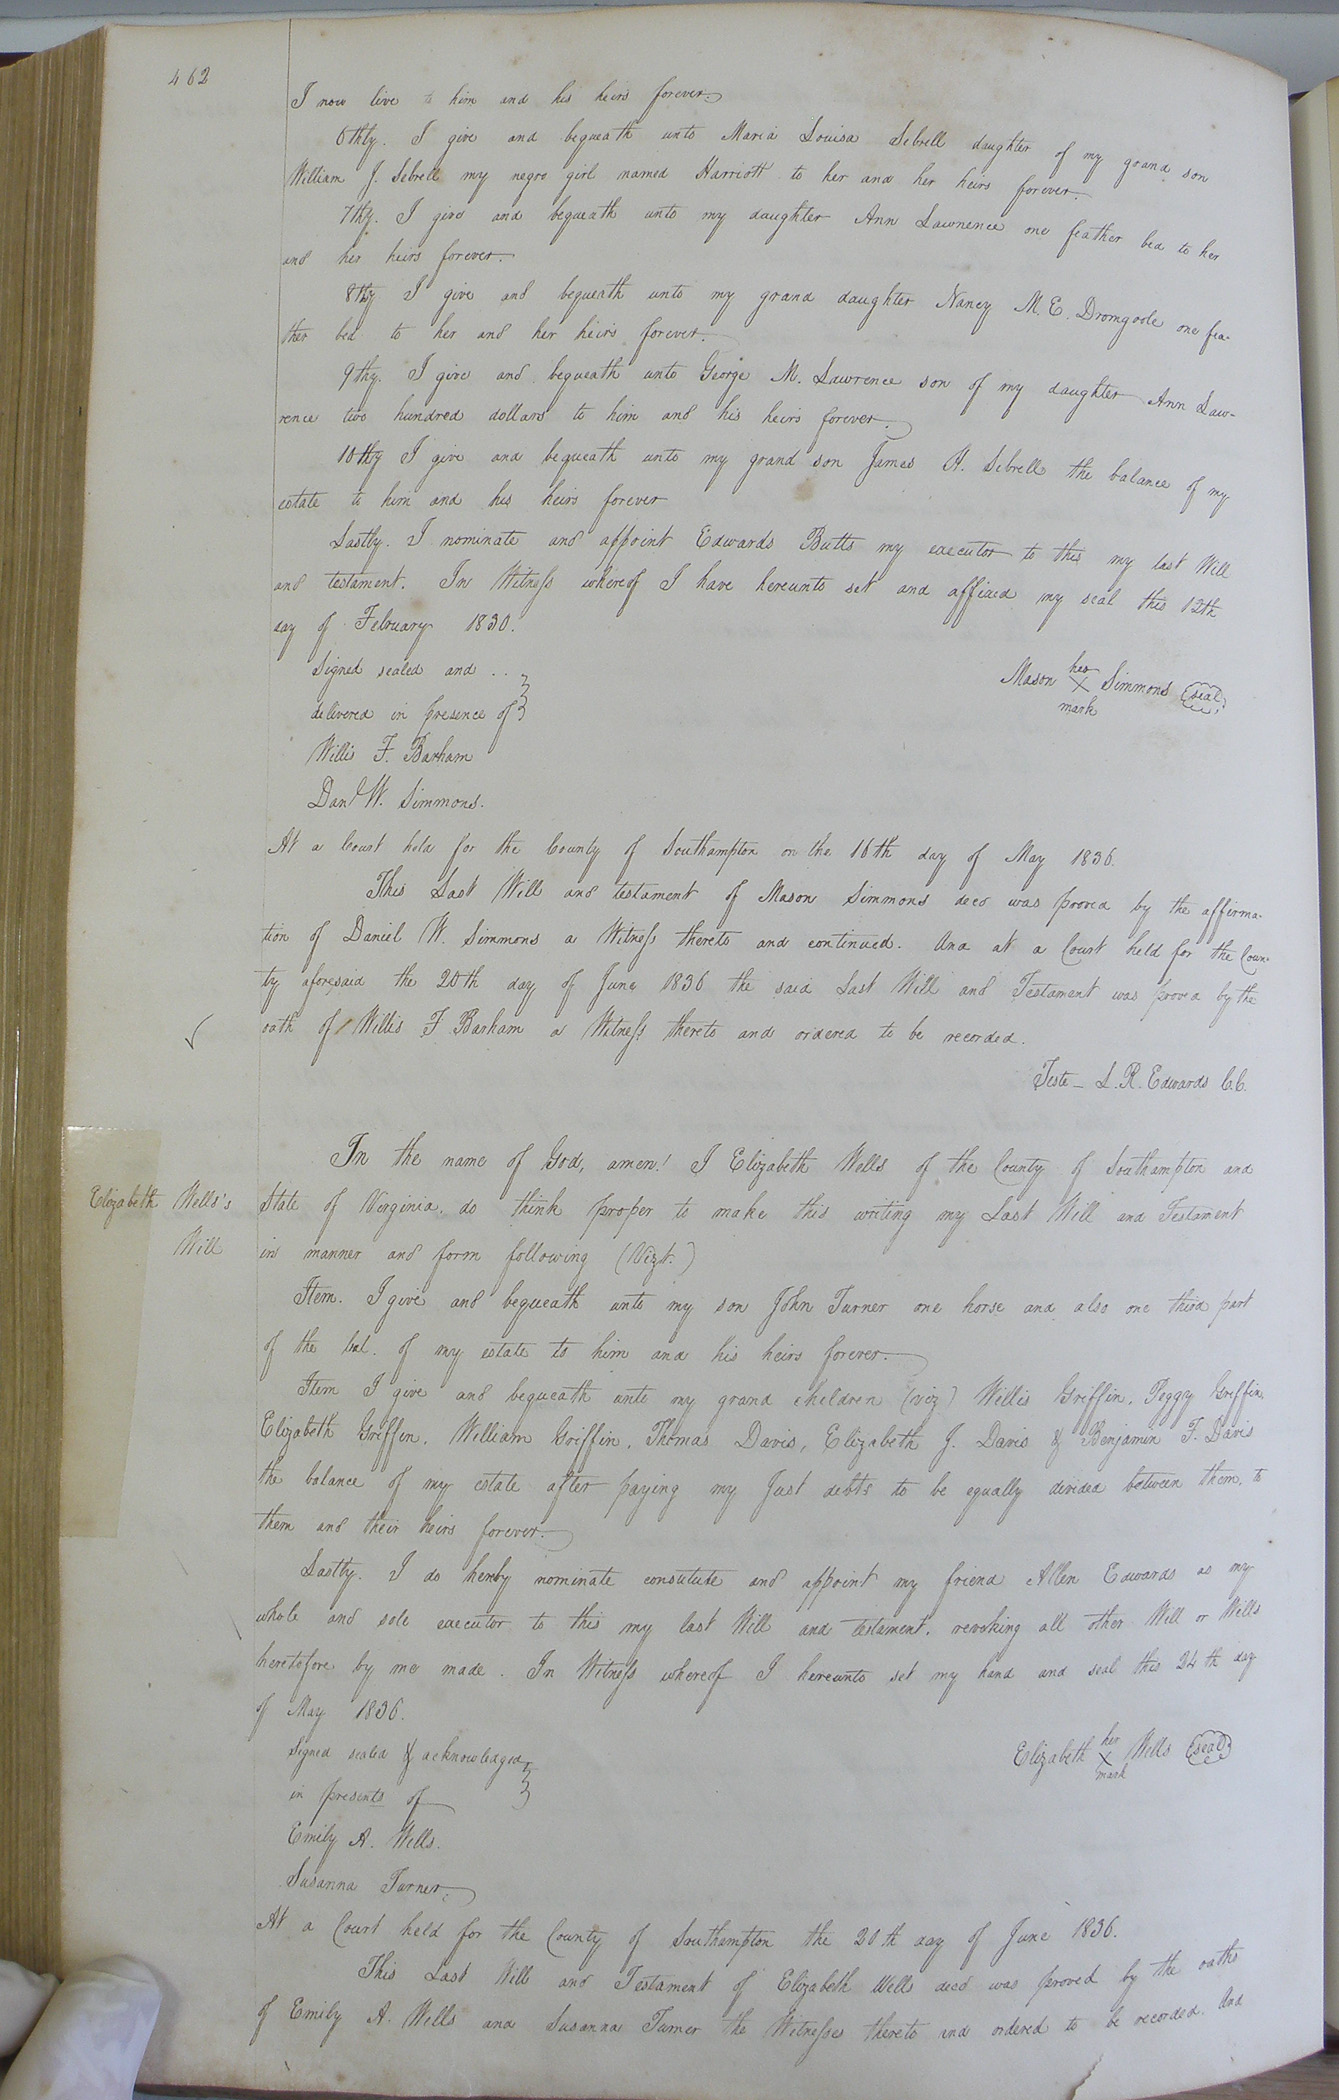 462
I now live to him and his heirs forever.
6thly. I give and bequeath unto Maria Louisa Sebrell daughter of my grand son
William J. Sebrell my negro girl named Harriott to her and her heirs forever.
7thy. I give and bequeath unto my daughter Ann Lawrence one feather bed to her
and her heirs forever.
8thy I give and bequeath unto my grand daughter Nancy M. E. Dromgoole one fea-
ther bed to her and her heirs forever.
9thy. I give and bequeath unto George M. Lawrence son of my daughter Ann Law-
rence two hundred dollars to him and his heirs forever.
10thy I give and bequeath unto my grand son James H. Sebrell the balance of my
estate to him and his heirs forever
Lastly. I nominate and appoint Edwards Butts my executor to this my last Will
and testament. In Witness whereof I have hereunto set and affixed my seal this 12th
day of February 1830.
Signed sealed and ..
delivered in presence of
Mason her X mark Simmons (seal)
Willis F. Barham
Danl W. Simmons.
At a Court held for the County of Southampton on the 16th day of May 1836.
This Last Will and testament of Mason Simmons decd was proved by the affirma-
tion of Daniel W. Simmons a Witness thereto and continued. And at a Court held for the Coun-
ty aforesaid the 20th day of June 1836 the said Last Will and Testament was proved by the
oath of Willis F Barham a Witness thereto and ordered to be recorded.
Teste - L. R. Edwards C.C.
Elizabeth Wells's
Will
In the name of God, amen! I Elizabeth Wells of the County of Southampton and
State of Virginia, do think proper to make this writing my Last Will and Testament
in manner and form following (Vizt.)
Item. I give and bequeath unto my son John Turner one horse and also one third part
of the bal. of my estate to him and his heirs forever.
Item I give and bequeath unto my grand children (viz) Willis Griffin, Peggy Griffin,
Elizabeth Griffin, William Griffin, Thomas Davis, Elizabeth J. Davis & Benjamin F. Davis
the balance of my estate after paying my Just debts to be equally divided between them, to
them and their heirs forever.
Lastly. I do hereby nominate constitute and appoint my friend Allen Edwards as my
whole and sole executor to this my last Will and testament, revoking all other Will or Wills
heretofore by me made. In Witness whereof I hereunto set my hand and seal this 24th day
of May 1836.
Signed sealed & acknowledged
in presents of
Elizabeth her X mark Wells (seal)
Emily A. Wells.
Susanna Turner.
At a Court held for the County of Southampton the 20th day of June 1836.
This Last Will and Testament of Elizabeth Wells decd was proved by the oaths
of Emily A. Wells and Susanna Turner the Witnesses thereto and ordered to be recorded. And